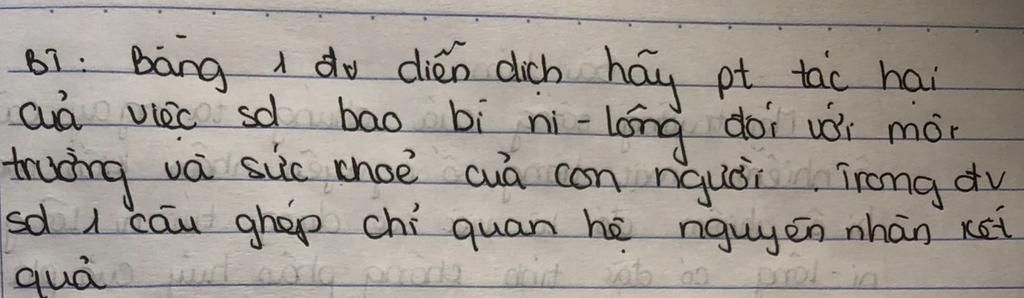 B1: Bằng 1 đv diễn dịch hãy pt tác hại
của việc sd bao bì ni-lông đối với môi
trường và sức khoẻ của con người. Trong đv
sd 1 câu ghép chỉ quan hệ nguyên nhân kết
quả